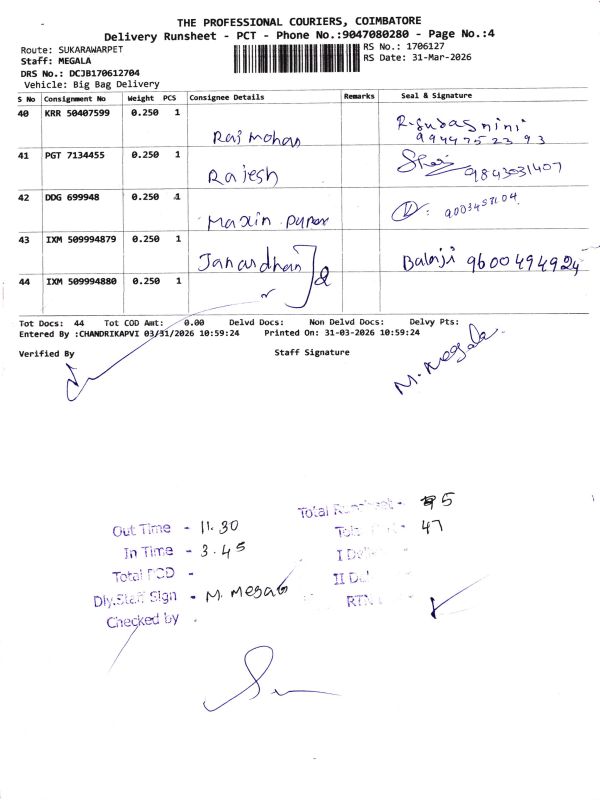 THE PROFESSIONAL COURIERS, COIMBATORE
Delivery Runsheet - PCT - Phone No.:9047080280 - Page No.:4
Route: SUKARAWARPET
RS No.: 1706127
Staff: MEGALA
RS Date: 31-Mar-2026
DRS No.: DCJB170612704
Vehicle: Big Bag Delivery
S No Consignment No Weight PCS Consignee Details Remarks Seal & Signature
40 KRR 50407599 0.250 1 Raj mohan
99447523 93
41 PGT 7134455 0.250 1 Rajesh 9843031407
42 DDG 699948 0.250 1
43 IXM 509994879 0.250 1 Janardhan Balaji 9600494924
44 IXM 509994880 0.250 1
Tot Docs: 44 Tot COD Amt: 0.00 Delvd Docs: Non Delvd Docs: Delvy Pts:
Entered By :CHANDRIKAPVI 03/31/2026 10:59:24 Printed On: 31-03-2026 10:59:24
Verified By Staff Signature
M. Megala.
Total Runsheet - 5
Out Time - 11.30
47
In Time - 3.45
I Del
Total POD -
II Del
Dly.Staff Sign - M. Megala
RTN
Checked by